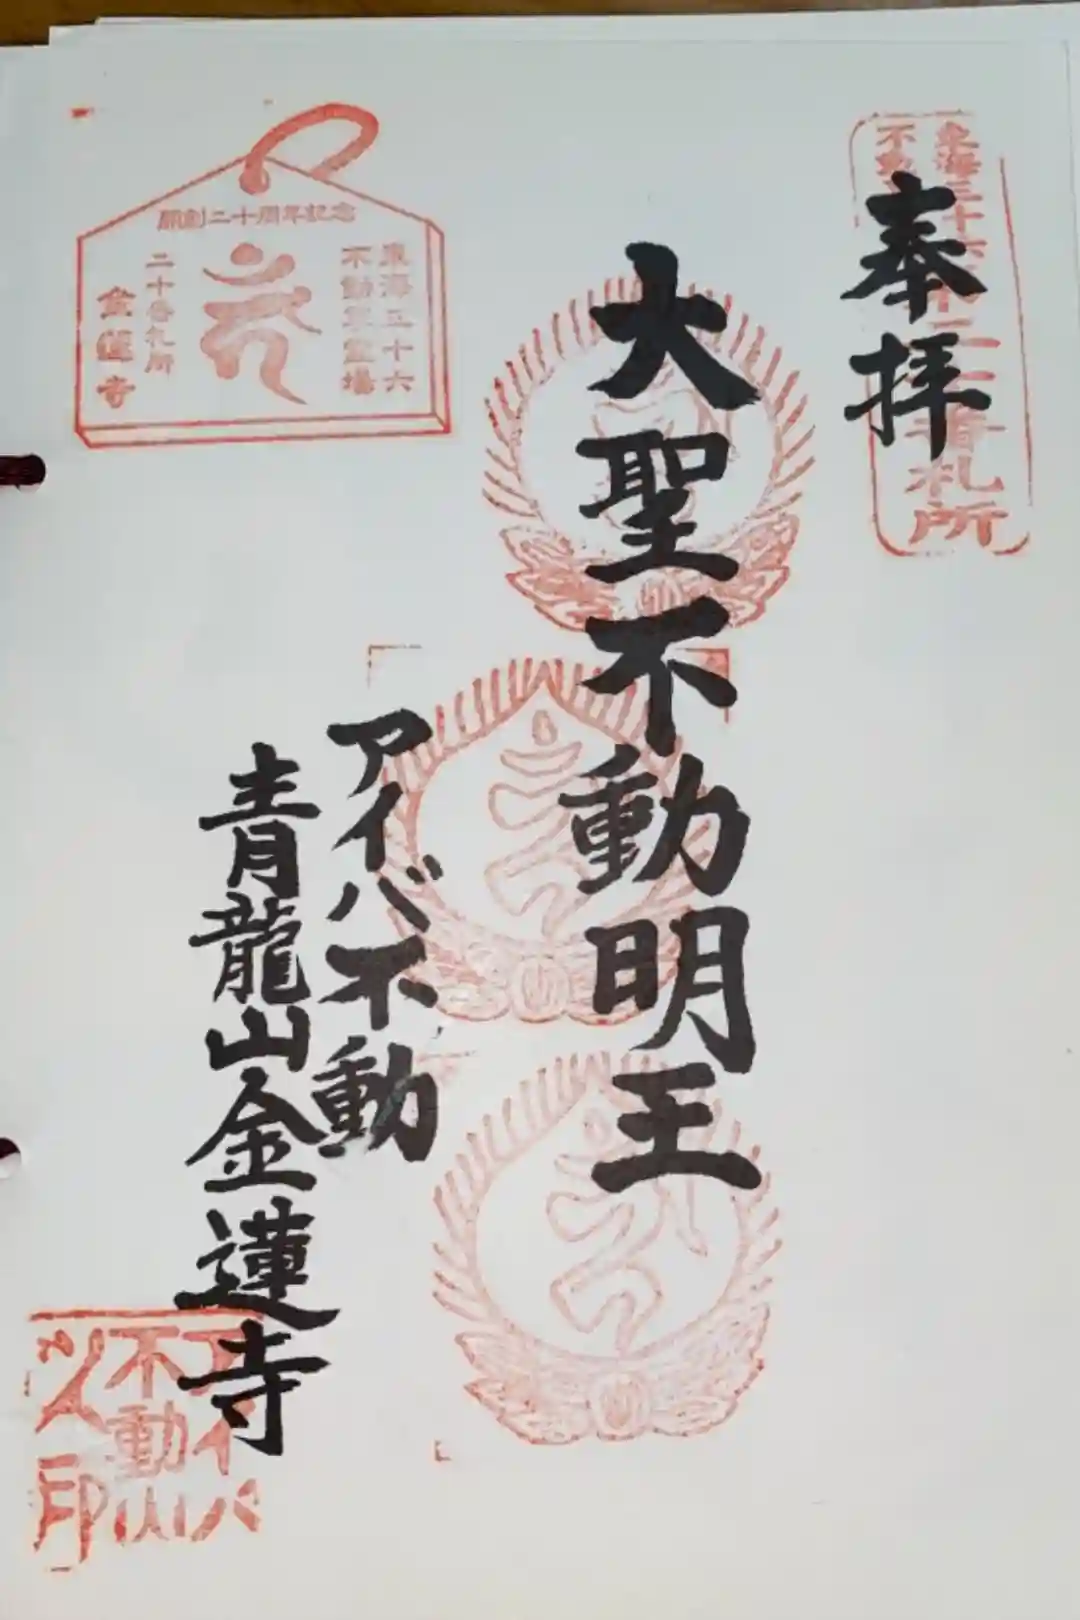 奉拝
大聖不動明王
アイバ不動
青龍山金蓮寺
開創二十周年記念
東海三十六
不動尊霊場
二十番札所
金蓮寺
東海三十六
札所
アイバ
不動
印